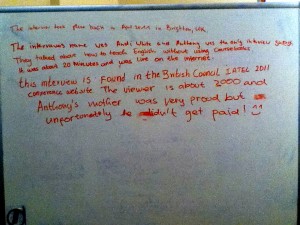 The interview took place back in April 2011 in Brighton, UK.
The interviewers name was Andi White and Anthony was the only interview guest.
They talked about how to teach English without using Coursebooks
It was about 20 minutes and was live on the internet.
this interview is found in the British Council IATEFL 2011
conference website. The viewer is about 2000 and
Anthony's mother was very proud but
unfortunately he didn't get paid! :)